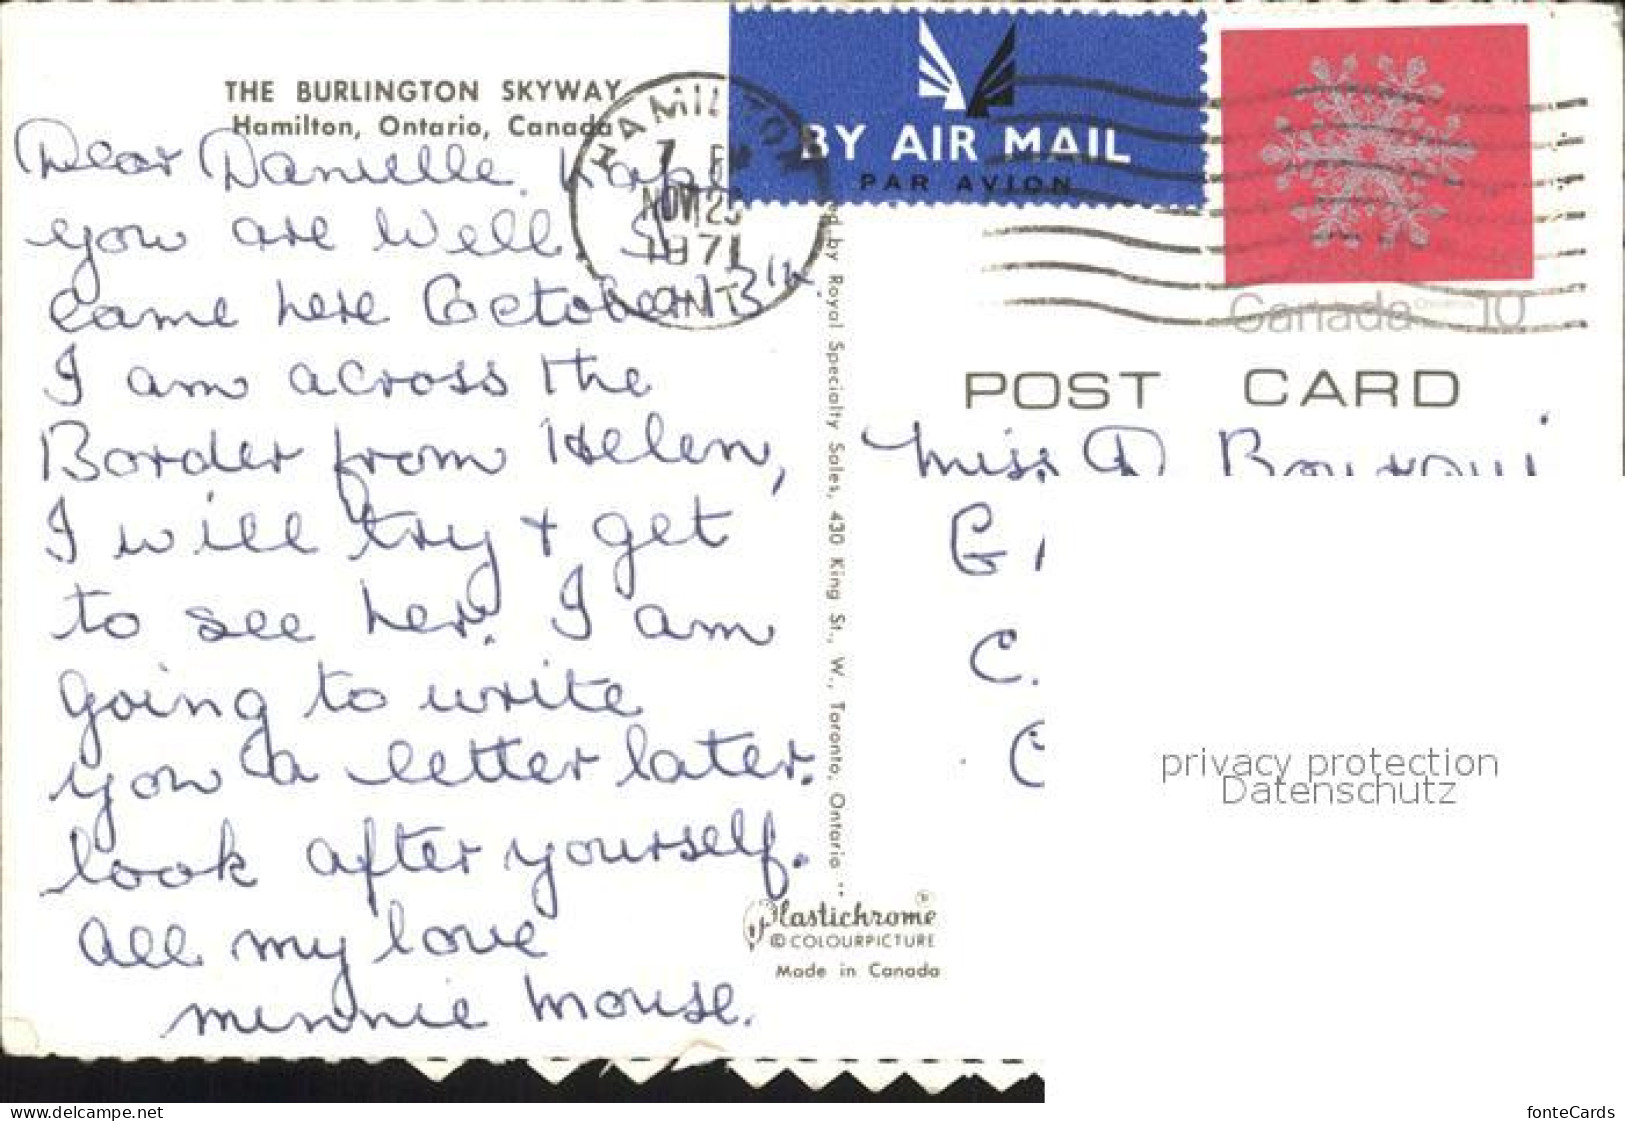 THE BURLINGTON SKYWAY
Hamilton, Ontario, Canada
Dear Danielle. Hope
you are well. I
came here October 13th.
I am across the
Border from Helen,
I will try + get
to see her. I am
going to write
you a letter later.
look after yourself.
all my love
minnie mouse.
HAMILTON
NOV 2
1971
ONT
BY AIR MAIL
PAR AVION
Canada 10
POST CARD
by Royal Specialty Sales, 430 King St., W., Toronto, Ontario
Plastichrome®
© COLOURPICTURE
Made in Canada
Miss D
G
C.
C
privacy protection
Datenschutz
www.delcampe.net
fonteCards